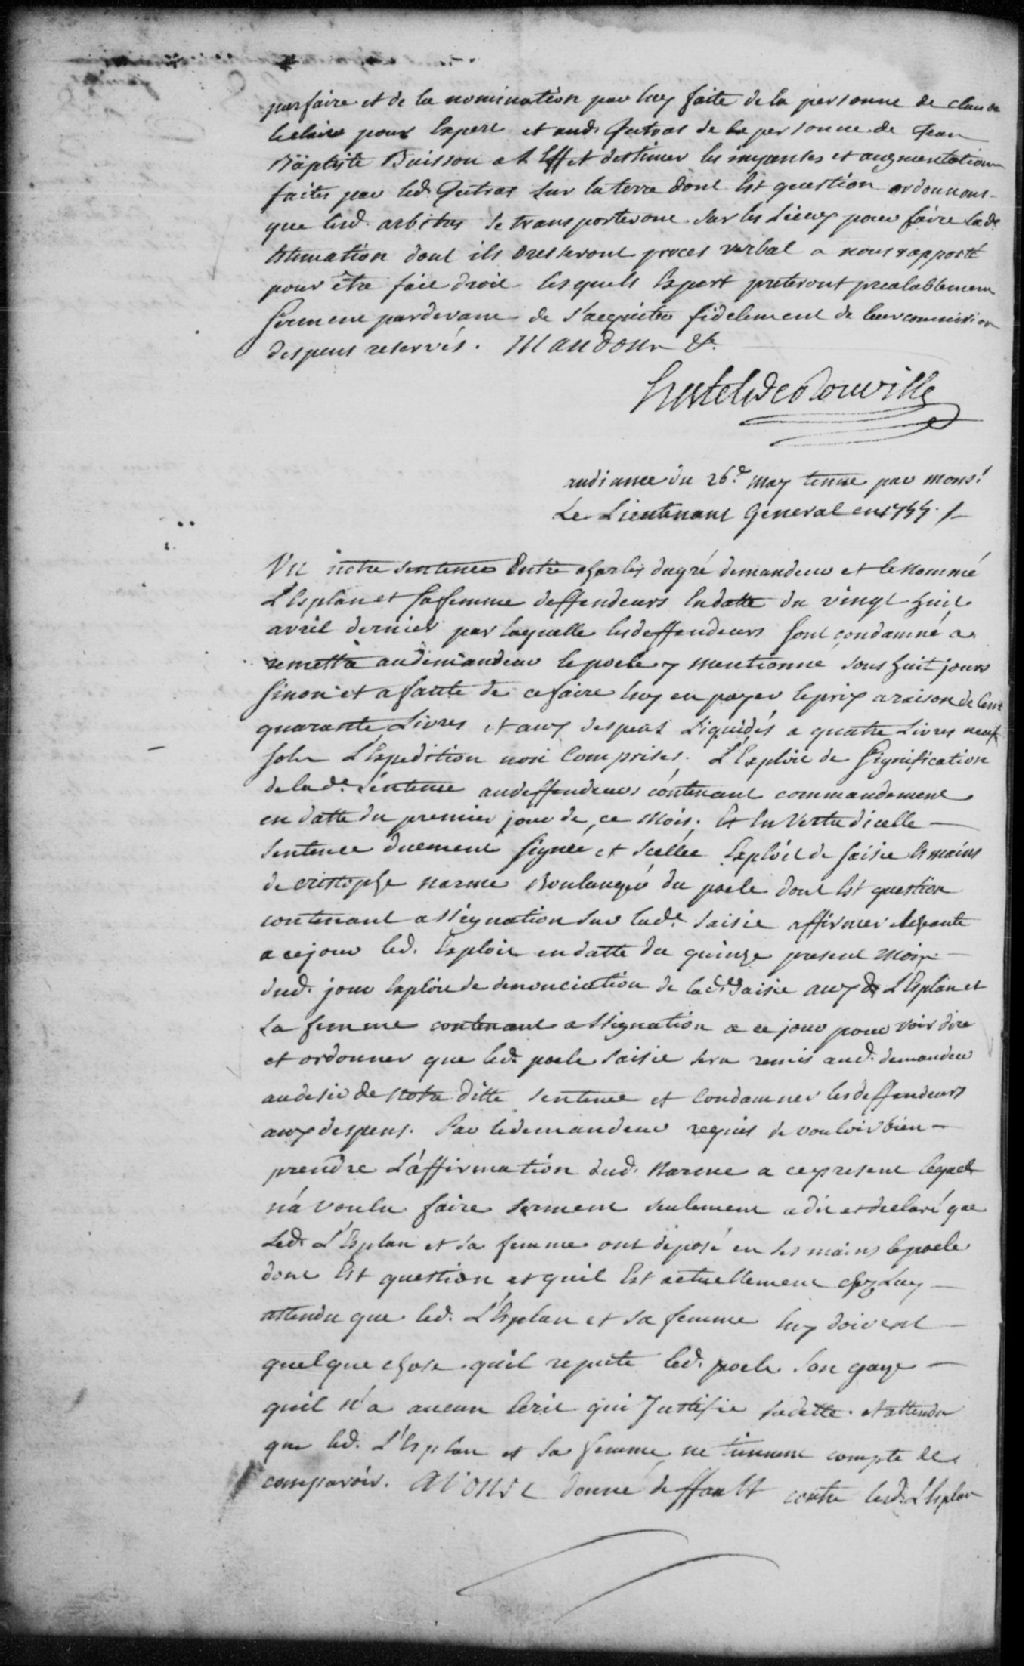 parfaire et de la nomination par luy faite de la personne de claude
leclaire pour Expert et aud. Gutras de la personne de Jean
Baptiste Buisson a l'Effet destimer les impenses et augmentations
faites par led. Gutras sur la terre dont Est question ordonnons
que lesd. arbitres se transporteront sur les Lieux pour faire lade.
Estimation dont ils dresseront proces verbal a nous rapporté
pour être fait droit lesquels Expert preteront prealablement
serment pardevant de s'acquitter fidelement de leur commission
despens reservés. Mandons &c.
Hertel de Rouville
audiance du 26e. may tenue par monsr.
Le Lieutenant General en 1755.
Vu notre sentence Entre charles dugré demandeur et le nommé
L'Esplan et sa femme deffendeurs En datte du vingt huit
avril dernier par laquelle lesdeffendeurs sont condamné a
remettre audemandeur le poele y mentionné sous huit jours
sinon et a faute de ce faire luy en payer le prix a raison de Cent
quarante Livres et aux despens Liquidés a quatre Livres neuf
sols L'Expedition non Comprises. L'Exploit de signification
de lade. sentence audeffendeurs contenant commandement
en datte du premier jour de ce mois. Et En Vertu dicelle
sentence duement signée et scellée Exploit de saisie Es mains
de cristophe marme Boulanger du poele dont Est question
contenant assignation sur lade. saisie affirmer
a ce jour led. Exploit en datte du quinze present mois
dud. jour Exploit de denonciation de lade. saisie auxd. L'Esplan et
sa femme contenant assignation a ce jour pour voir dire
et ordonner que led. poele saisie sera remis aud. demandeur
au desir de Notre ditte sentence et Condamner les deffendeurs
aux despens. Par le demandeur requis de vouloir bien
prendre L'affirmation dud. marme a ce present lequel
n'a voulu faire serment seulement a dit et declaré que
Led. L'Esplan et sa femme ont deposé en ses mains le poele
dont Est question et quil Est actuellement chez Luy
attendu que led. L'Esplan et sa femme luy doivent
quelque chose quil repute led. poele son gage
quil n'a aucun Ecrit qui Justifie sadette. et attendu
que led. L'Esplan et sa femme ne tiennent compte de
comparoir. AVONS donné deffault contre lesd. L'Esplan